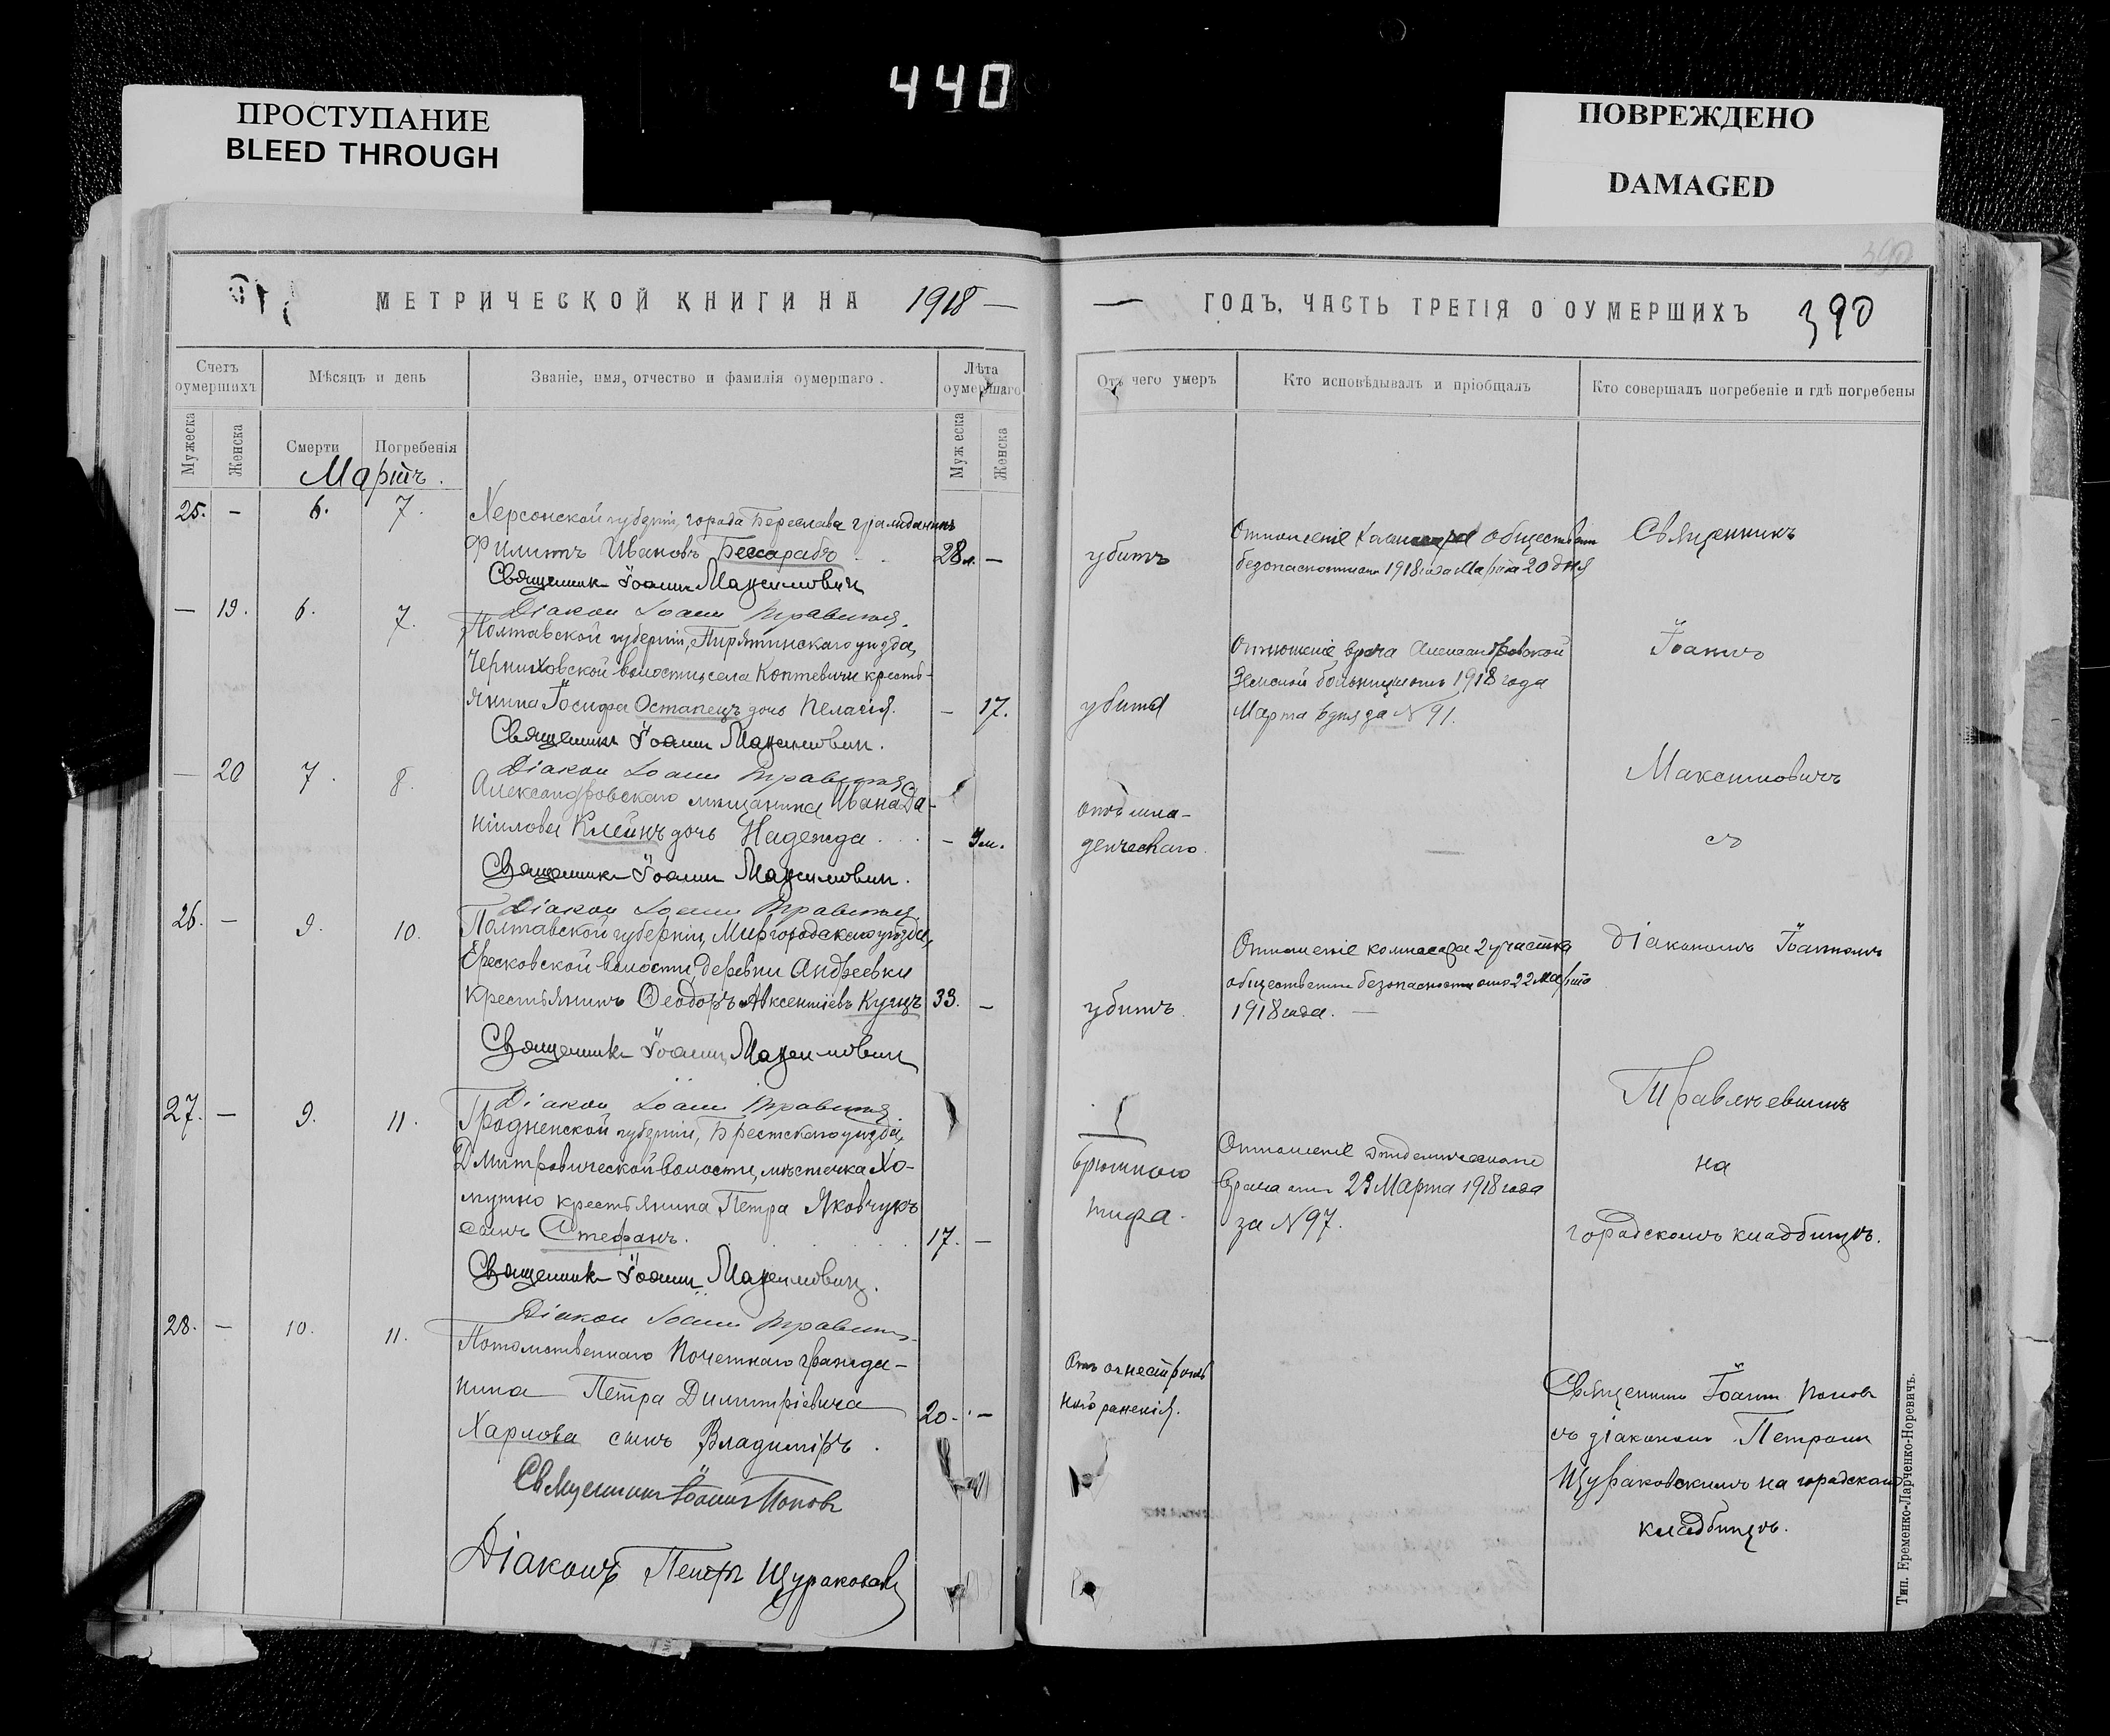 440
ПРОСТУПАНИЕ
BLEED THROUGH
ПОВРЕЖДЕНО
DAMAGED
МЕТРИЧЕСКОЙ КНИГИ НА 1918 —
Счетъ оумершихъ
Мѣсяцъ и день
Званіе, имя, отчество и фамилія оумершаго.
Лѣта оумершаго
Мужеска
Женска
Смерти
Погребенія
Мужеска
Женска
Мартъ.
25. — 6. 7. Херсонской губерніи, города Береслава гражданинъ
Филиппъ Ивановъ Бессарабъ 28 л. —
Священникъ Іоаннъ Максимовичъ
Діакон Іоанн
— 19. 6. 7. Полтавской губерніи, Пирятинскаго уѣзда,
волости, села крестьянина Іосифа Остапецъ дочь Пелагія. — 17.
Священникъ Іоаннъ Максимовичъ.
Діакон Іоанн
— 20 7. 8. Александровскаго мѣщанина Ивана Да-
ніилова Клейнъ дочь Надежда — м.
Священникъ Іоаннъ Максимовичъ.
Діакон Іоанн
26. — 9. 10. Полтавской губерніи, Миргородскаго уѣзда,
Ересковской волости, деревни Андреевки
крестьянинъ Ѳеодоръ Авксентіевъ Куцъ 33. —
Священникъ Іоаннъ Максимовичъ
Діакон Іоанн
27. — 9. 11. Гродненской губерніи, Брестскаго уѣзда,
Дмитровической волости, мѣстечка Хо-
мутно крестьянина Петра Яковчукъ
сынъ Стефанъ. 17. —
Священникъ Іоаннъ Максимовичъ.
Діакон Іоанн
28. — 10. 11. Потомственнаго Почетнаго гражда-
нина Петра Димитріевича 20. —
Харлова сынъ Владиміръ.
Священникъ Іоаннъ Поповъ
Діаконъ Петръ Щураковскій
390
— ГОДЪ, ЧАСТЬ ТРЕТІЯ О ОУМЕРШИХЪ 390
Отъ чего умеръ
Кто исповѣдывалъ и пріобщалъ
Кто совершалъ погребеніе и гдѣ погребены
убитъ
Отношеніе общественн
безопасности 1918 года Марта 20 дня
Священникъ
убита
Отношеніе врача Александровской
Земской больницы отъ 1918 года
Марта 6 дня за № 91.
Іоаннъ
Максимовичъ
отъ мла-
денческаго.
—
съ
убитъ.
Отношеніе комиссара 2 участка
общественн безопасности отъ 22 Марта
1918 года. —
діакономъ Іоанномъ
Травлевымъ
брюшного
тифа.
Отношеніе эпидемическаго
врача отъ 23 Марта 1918 года
за № 97.
на
городскомъ кладбищѣ.
Отъ огнестрѣль
ного раненія.
Священникъ Іоаннъ Попов
съ діакономъ Петромъ
Щураковскимъ на городскомъ
кладбищѣ.
Тип. Еременко-Ларченко-Норевичъ.